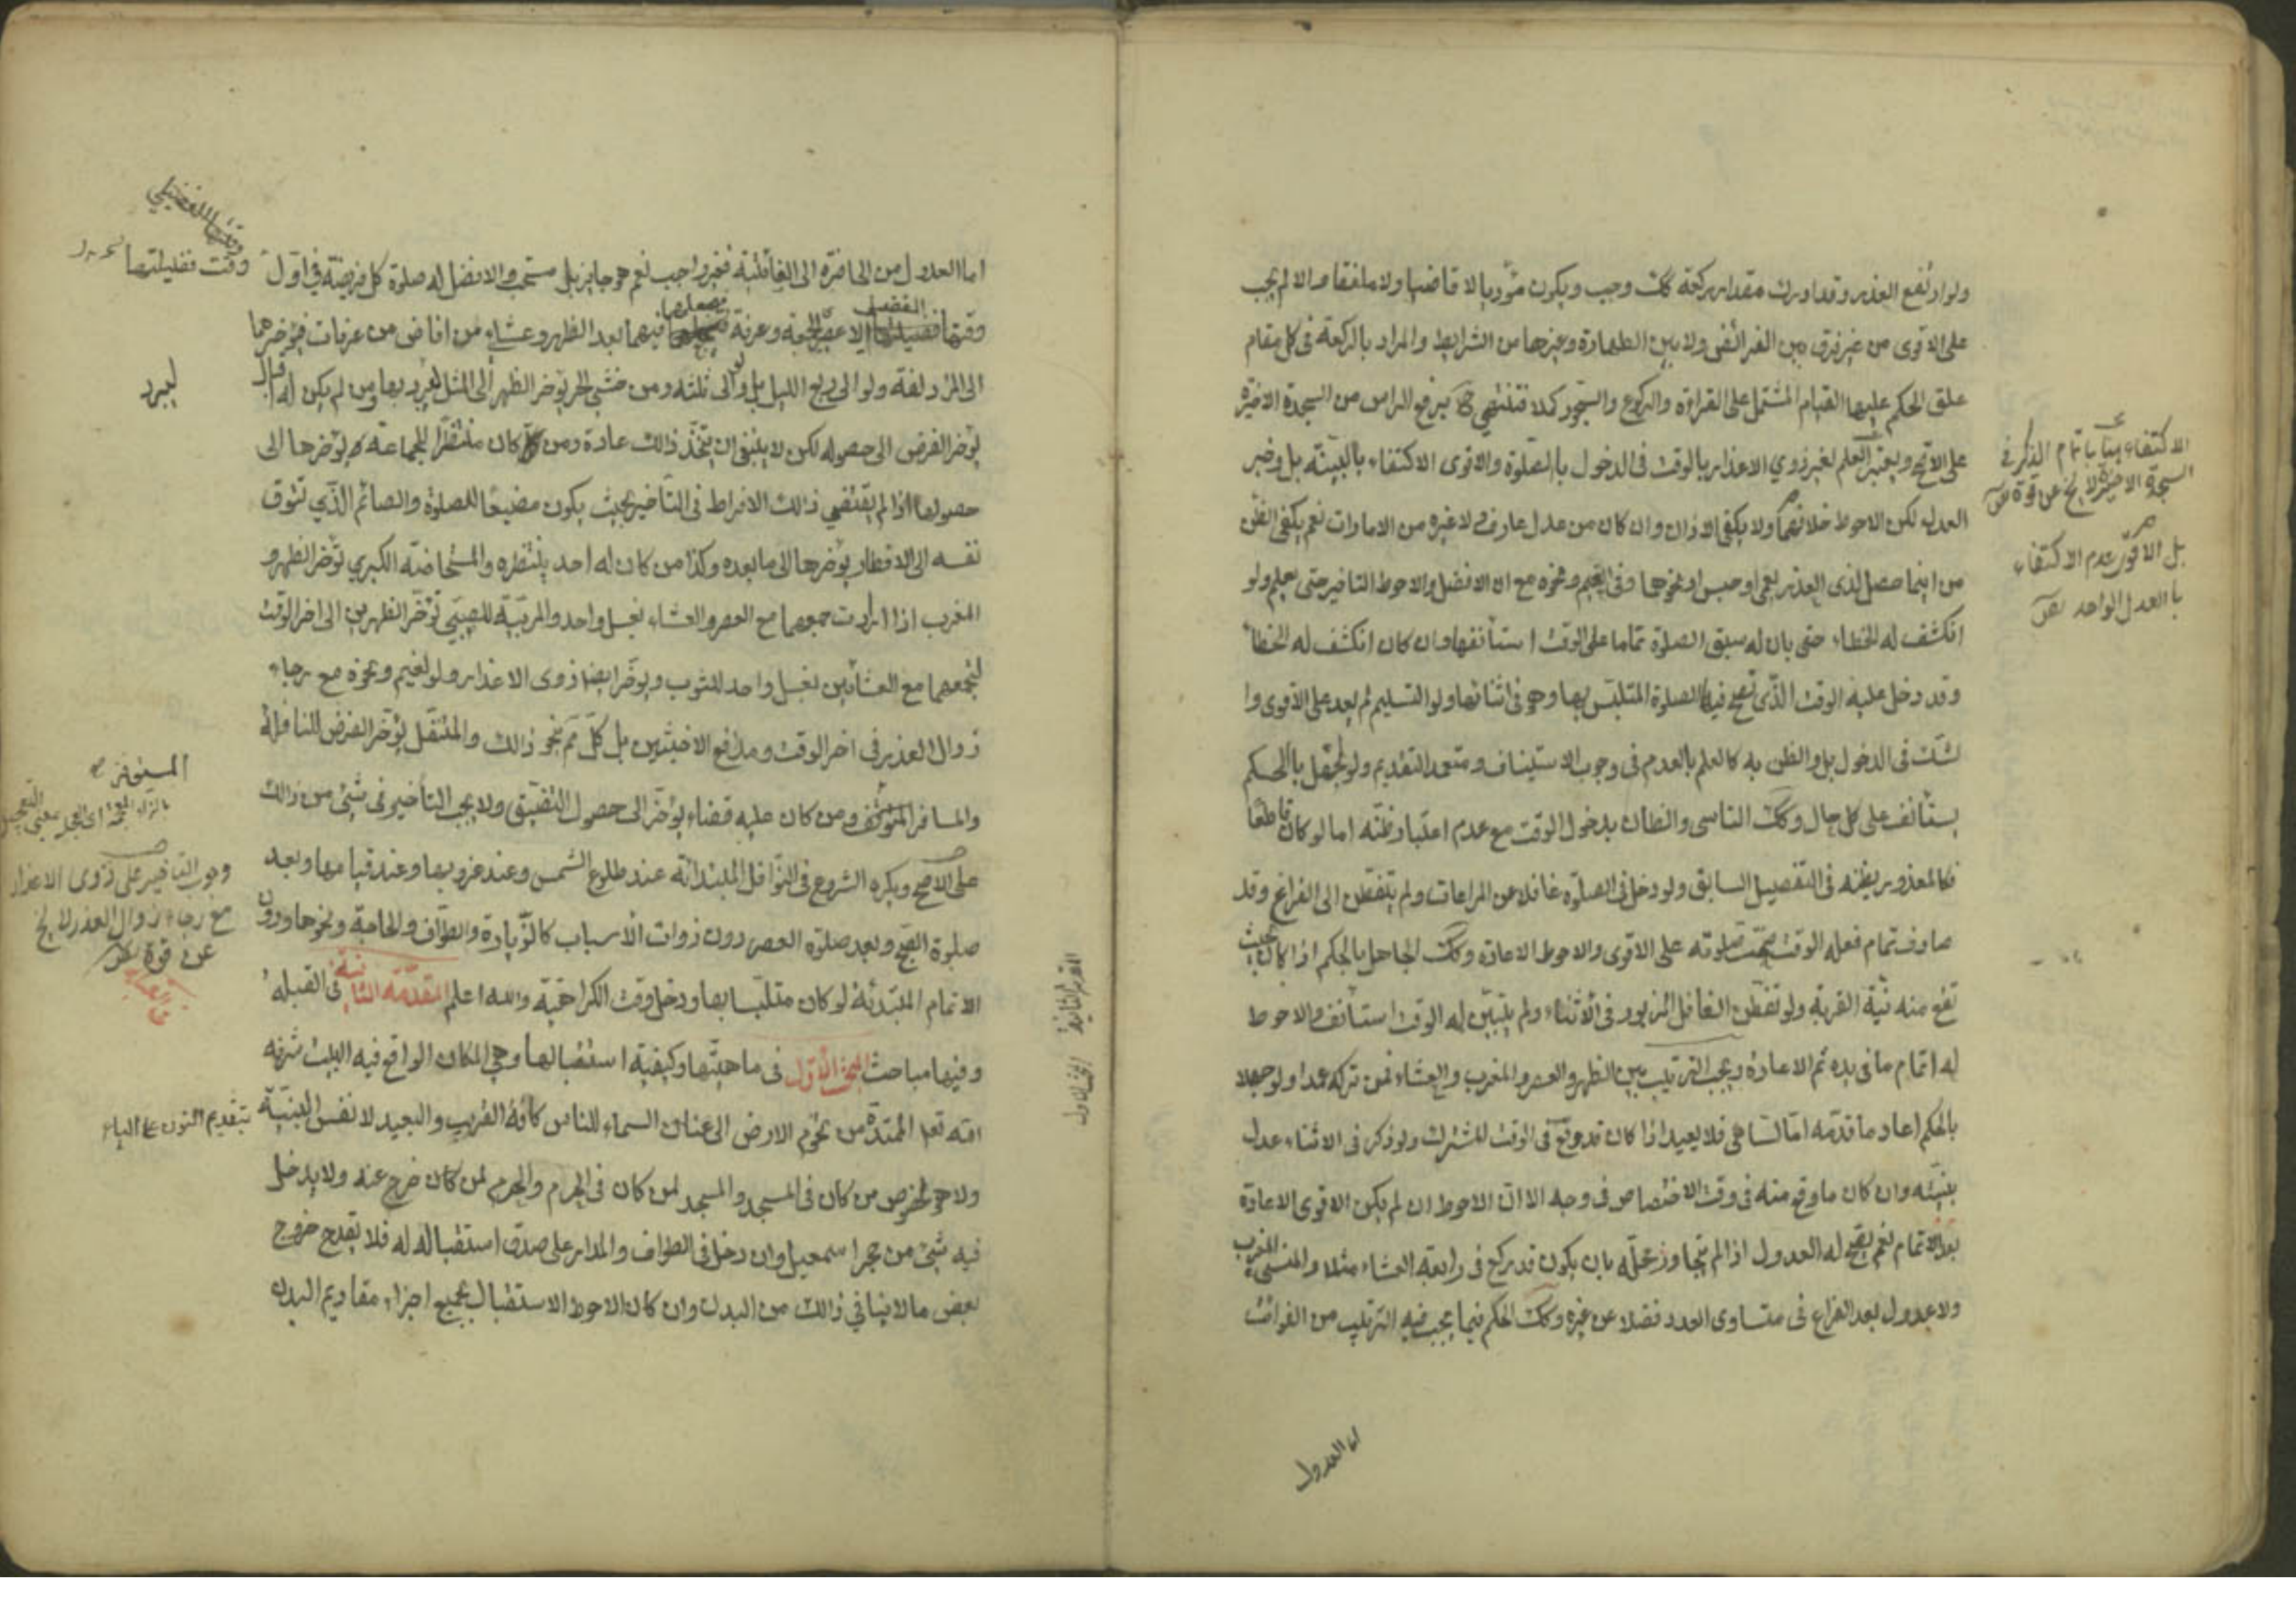 ولو ارتفع العذر وقد ادرك مقدار ركعة كك وجب ويكون مؤديا لا قاضيا ولا ملفقا والا لم يجب
على الاقوى من غير فرق بين الفرائض ولا بين الطهارة وغيرها من الشرايط والمراد بالركعة في كل مقام
علق الحكم عليها القيام المشتمل على القراءة والركوع والسجود كملا فتنتهي ح برفع الراس من السجدة الاخيرة
على الاصح ويعتبر العلم لغير ذوي الاعذار بالوقت في الدخول بالصلوة والاقوى الاكتفاء بالبينة بل وخبر
العدل لكن الاحوط خلافهما ولا يكفي الاذان وان كان من عدل عارف ولا غيره من الامارات نعم يكفي الظن
من اينما حصل لذى العذر لعمى او حبس او نحوها وفي الغيم ونحوه مع ان الافضل والاحوط التاخير حتى يعلم ولو
انكشف له الخطاء حتى بان له سبق الصلوة تماما على الوقت استأنفها وان كان انكشف له الخطأ
وقد دخل عليه الوقت الذي تصح فيه الصلوة المتلبس بها وهو في اثنائها ولو التسليم لم يعد على الاقوى وا
لشك في الدخول بل والظن به كالعلم بالعدم في وجوب الاستيناف ومتعمد التقديم ولو لجهل بالحكم
يستأنف على كل حال وكك الناسي والظان بدخول الوقت مع عدم اعتبار ظنه اما لو كان قاطعا
فكالمعذور بظنه في التفصيل السابق ولو دخل في الصلوة غافلا عن المراعات ولم يتفطن الى الفراغ وقد
صادف تمام فعله الوقت صحت صلوته على الاقوى والاحوط الاعادة وكك الجاهل بالحكم اذا كان بحيث
تقع منه نية القربة ولو تفطن الغافل المزبور في الاثناء ولم يتبين له الوقت استأنف والاحوط
له اتمام ما في يده ثم الاعادة ويجب الترتيب بين الظهر والعصر والمغرب والعشاء فمن تركه عمدا ولو جهلا
بالحكم اعاد ما قدمه اما الساهي فلا يعيد اذا كان قد وقع في الوقت المشترك ولو ذكر في الاثناء عدل
بنيته وان كان ما وقع منه في وقت الاختصاص في وجه الا ان الاحوط ان لم يكن الاقوى الاعادة
بعد الاتمام نعم يصح له العدول اذا لم يتجاوز محله بان يكون قد ركع في رابعة العشاء مثلا والمنسي المغرب
ولا عدول بعد الفراغ في متساوى العدد فضلا عن غيره وكك الحكم فيما يجب فيه الترتيب من الفوائت
اما العدول
الاكتفاء باتمام الذكر في
السجدة الاخيرة لا يخ عن قوة
بل الاقوى عدم الاكتفاء
بالعدل الواحد
اما العدول من الحاضرة الى الفائتة فغير واجب نعم هو جايز بل مستحب والافضل له صلوة كل فريضة في اول
وقت فضيلتها
وقتها الفضيلي الا عصر الجمعة وعرفة فيجعلها فيهما بعد الظهر وعشاء من افاض من عرفات فيؤخرها
الى المزدلفة ولو الى ربع الليل بل ولو الى ثلثه ومن خشى الحر يؤخر الظهر الى المثل ليبرد بها ومن لم يكن له اقبال
ليبرد
يؤخر الفرض الى حصوله لكن لا ينبغي ان يتخذ ذلك عادة ومن كان منتظرا للجماعة يؤخرها الى
حصولها اذا لم يقتضي ذلك الافراط في التأخير بحيث يكون مضيعا للصلوة والصائم الذي تتوق
نفسه الى الافطار يؤخرها الى ما بعده وكذا من كان له احد ينتظره والمستحاضة الكبرى تؤخر الظهر و
المغرب اذا ارادت جمعهما مع العصر والعشاء بغسل واحد والمربية للصبي تؤخر الظهرين الى اخر الوقت
لتجمعهما مع العشائين بغسل واحد للثوب ويؤخر ايضا ذوى الاعذار ولو لغيم ونحوه مع رجاء
زوال العذر في اخر الوقت ومدافع الاخبثين بل كل نحو ذلك والمتنفل يؤخر الفرض للنافلة
والمسافر المستوفز ومن كان عليه قضاء يؤخر الى حصول التضييق ولا يجب التأخير في شئ من ذلك
المستوفز
وجوب التاخير على ذوى الاعذار
مع رجاء زوال العذر لا يخ
عن قوة
على الاصح ويكره الشروع في النوافل المبتدائة عند طلوع الشمس وعند غروبها وعند قيامها وبعد
صلوة الصبح وبعد صلوة العصر دون ذوات الأسباب كالزيارة والطواف والحاجة ونحوها ودون
الاتمام المبتدئة لو كان متلبسا بها ودخل وقت الكراهية والله اعلم المقدمة الثانية في القبلة
وفيها مباحث المبحث الأول في ماهيتها وكيفية استقبالها وهي المكان الواقع فيه البيت شرفه
الله تعا الممتدة من تخوم الارض الى عنان السماء للناس كافة القريب والبعيد لا نفس البنية
بتقديم النون على الياء
ولا هو لخصوص من كان في المسجد والمسجد لمن كان في الحرم والحرم لمن كان خرج عنه ولا يدخل
فيه شئ من حجر اسمعيل وان دخل في الطواف والمدار على صدق استقباله له فلا يقدح خروج
بعض ما لا ينافي ذالك من البدن وان كان الاحوط الاستقبال بجميع اجزاء مقاديم البدن
المقدمة الثانية المبحث الاول